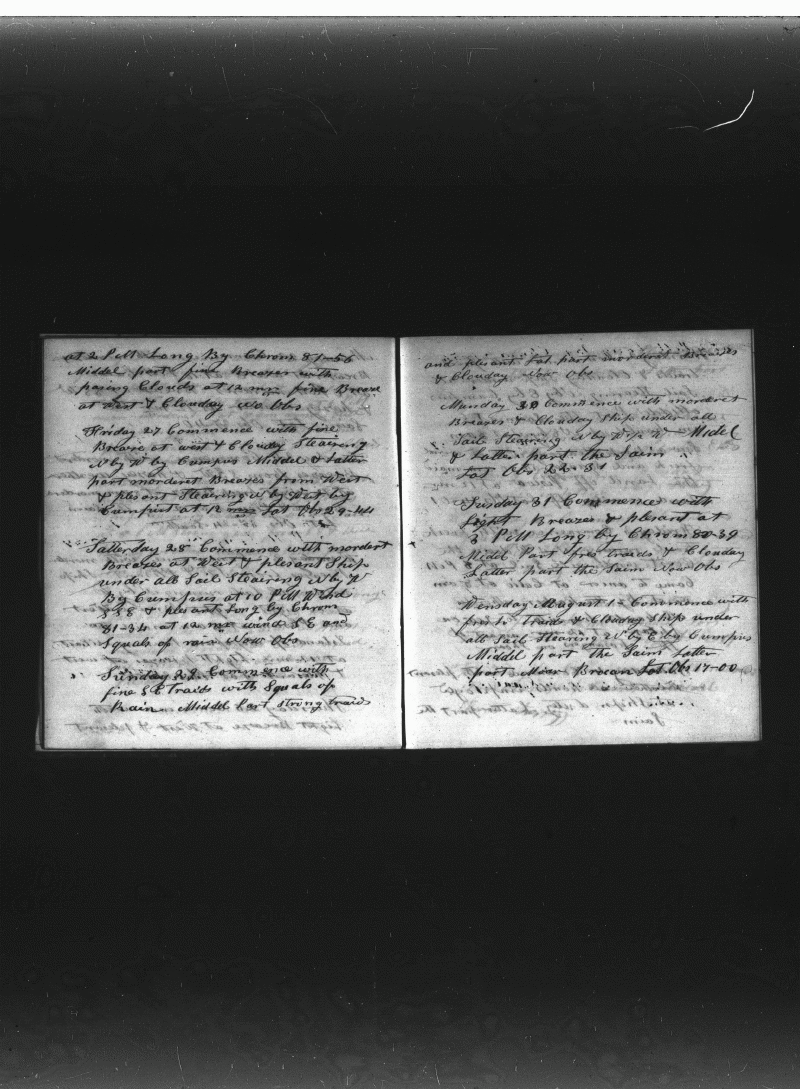 at 2 PM Long By Chrom 81-56
Middel part fine Breazes with
pasing Clouds at 12 mn fine Breaze
at West & Clouday No Obs
Friday 27 Commence with fine
Breaze at West & Clowdy Steairing
N by W by Cumpus Middel & Latter
part morderet Breazes from West
& plesant Stearing N by West by
Cumpus at 12 Lat Obs 29-44
Satterday 28 Commence with morderet
Breazes at West & plesant Ship
under all Sail Steairing N by W
By Cumpus at 10 PM Wind
SSE & plesant Long by Chrom
81-34 at 12 mn wind SE and
Squals of rain Now Obs
Sunday 29 Commence with
fine SE Traids with Squals of
Rain Middel Part Strong traids
and plesant Lat part morderet Breazes
& Clouday Now Obs
Munday 30 Commence with morderet
Breazes & Clouday Ship under all
Sail Steairing N by W Midel
& Latter part the Saim
Lat Obs 22-31
Tusday 31 Commence with
Light Breazes & plesant at
3 PM Long by Chrom 80-39
Midel Part free traids & Clouday
Latter part the Saim Now Obs
Wensday August 1 Commence with
fresh Traids & Clouday Ship under
all Sail Stearing N by E by Cumpus
Middel part the Saim Latter
part Mear Breazes Lat Obs 17-00